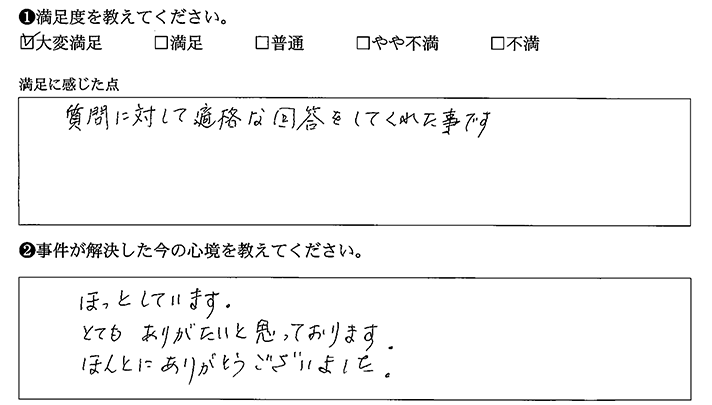 ❶満足度を教えてください。
☑大変満足 □満足 □普通 □やや不満 □不満
満足に感じた点
質問に対して適格な回答をしてくれた事です
❷事件が解決した今の心境を教えてください。
ほっとしています.
とても ありがたいと思っております.
ほんとにありがとうございました.